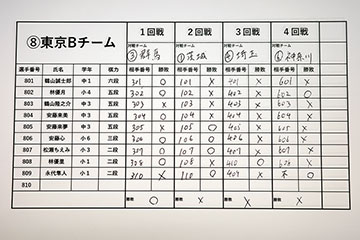 ⑧東京Bチーム
1回戦 2回戦 3回戦 4回戦
対戦チーム 対戦チーム 対戦チーム 対戦チーム
③群馬 ①茨城 ④埼玉 ⑥神奈川
選手番号 氏名 学年 棋力 相手番号 勝敗 相手番号 勝敗 相手番号 勝敗 相手番号 勝敗
801 鶴山誠士郎 中1 六段 301 101 × 401 × 601
802 林優月 小4 五段 302 ○ 102 × 402 × 602 ○
803 鶴山隆之介 中3 五段 303 × 103 × 403 × 603 ×
804 安藤來美 中3 五段 304 ○ 104 × 404 × 604 ×
805 安藤來夢 中3 五段 305 × 105 ○ 405 ×
806 安藤心 小6 三段 306 ○ 106 ○ 406 × 606 ×
807 松瀬ちえみ 小3 二段 307 ○ 107 ○ 407 × 607 ×
808 林優里 小1 二段 308 ○ 108 × 410 ○ 608 ×
809 永代隼人 小1 二段 310 × 110 ○ 409 × 不 ○
810
勝敗 ○ 勝敗 × 勝敗 × 勝敗 ×